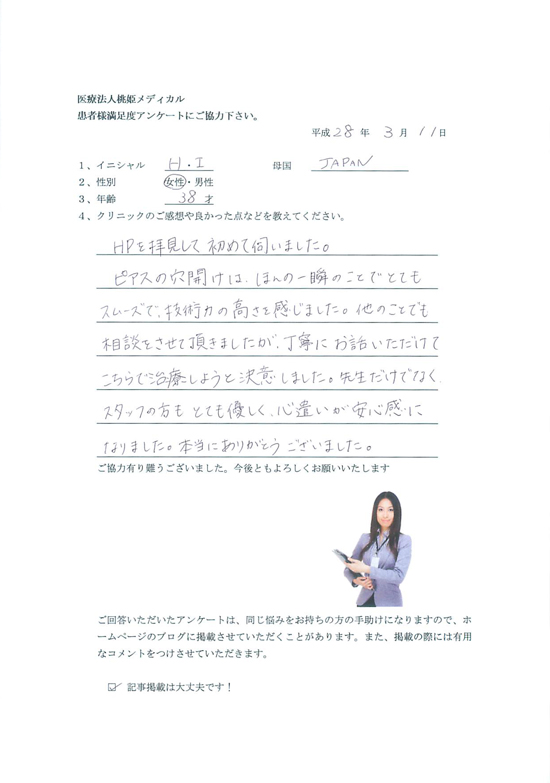 医療法人桃姫メディカル
患者様満足度アンケートにご協力下さい。
平成 28 年 3 月 11 日
1、イニシャル H・I 母国 JAPAN
2、性別 女性・男性
3、年齢 38 才
4、クリニックのご感想や良かった点などを教えてください。
HPを拝見して初めて伺いました。
ピアスの穴開けは、ほんの一瞬のことでとても
スムーズで、技術力の高さを感じました。他のことでも
相談をさせて頂きましたが、丁寧にお話いただけて
こちらで治療しようと決意しました。先生だけでなく、
スタッフの方もとても優しく、心遣いが安心感に
なりました。本当にありがとうございました。
ご協力有り難うございました。今後ともよろしくお願いいたします
ご回答いただいたアンケートは、同じ悩みをお持ちの方の手助けになりますので、ホ
ームページのブログに掲載させていただくことがあります。また、掲載の際には有用
なコメントをつけさせていただきます。
☑ 記事掲載は大丈夫です！